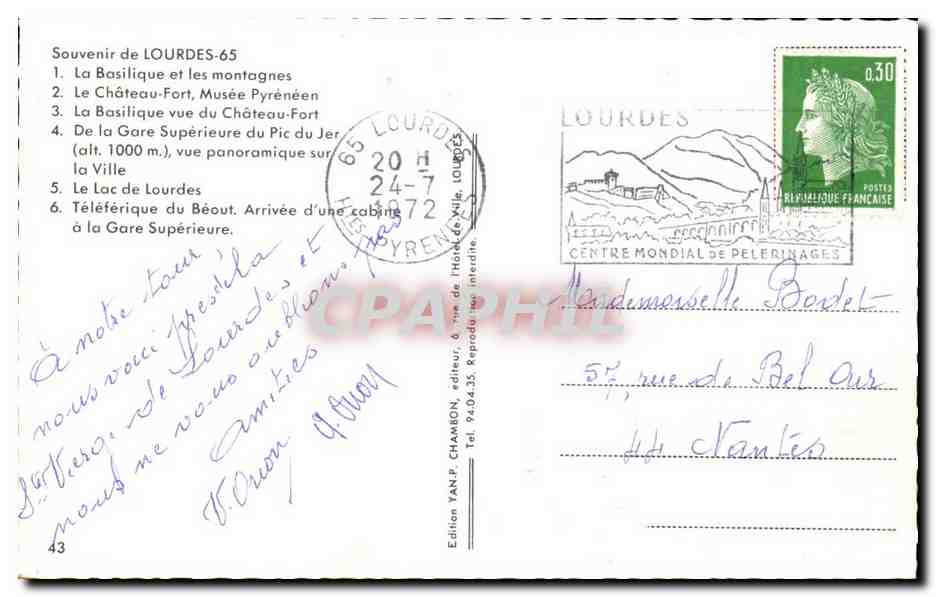 Souvenir de LOURDES-65
1. La Basilique et les montagnes
2. Le Château-Fort, Musée Pyrénéen
3. La Basilique vue du Château-Fort
4. De la Gare Supérieure du Pic du Jer
(alt. 1000 m.), vue panoramique sur
la Ville
5. Le Lac de Lourdes
6. Téléférique du Béout. Arrivée d'une cabine
à la Gare Supérieure.
À notre tour
nous voici près de la
Ste Vierge de Lourdes et
nous ne vous oublions pas
Amitiés
43
Edition YAN.P. CHAMBON, editeur, 6 rue de l'Hôtel-de-Ville, LOURDES.
Tel. 94.04.35. Reproduction interdite.
65 LOURDES
20 H
24-7
1972
HTES PYRENEES
LOURDES
CENTRE MONDIAL DE PELERINAGES
0,30
POSTES
REPUBLIQUE FRANÇAISE
Mademoiselle Bodet
57, rue de Bel Air
44 Nantes
CPAPHIL